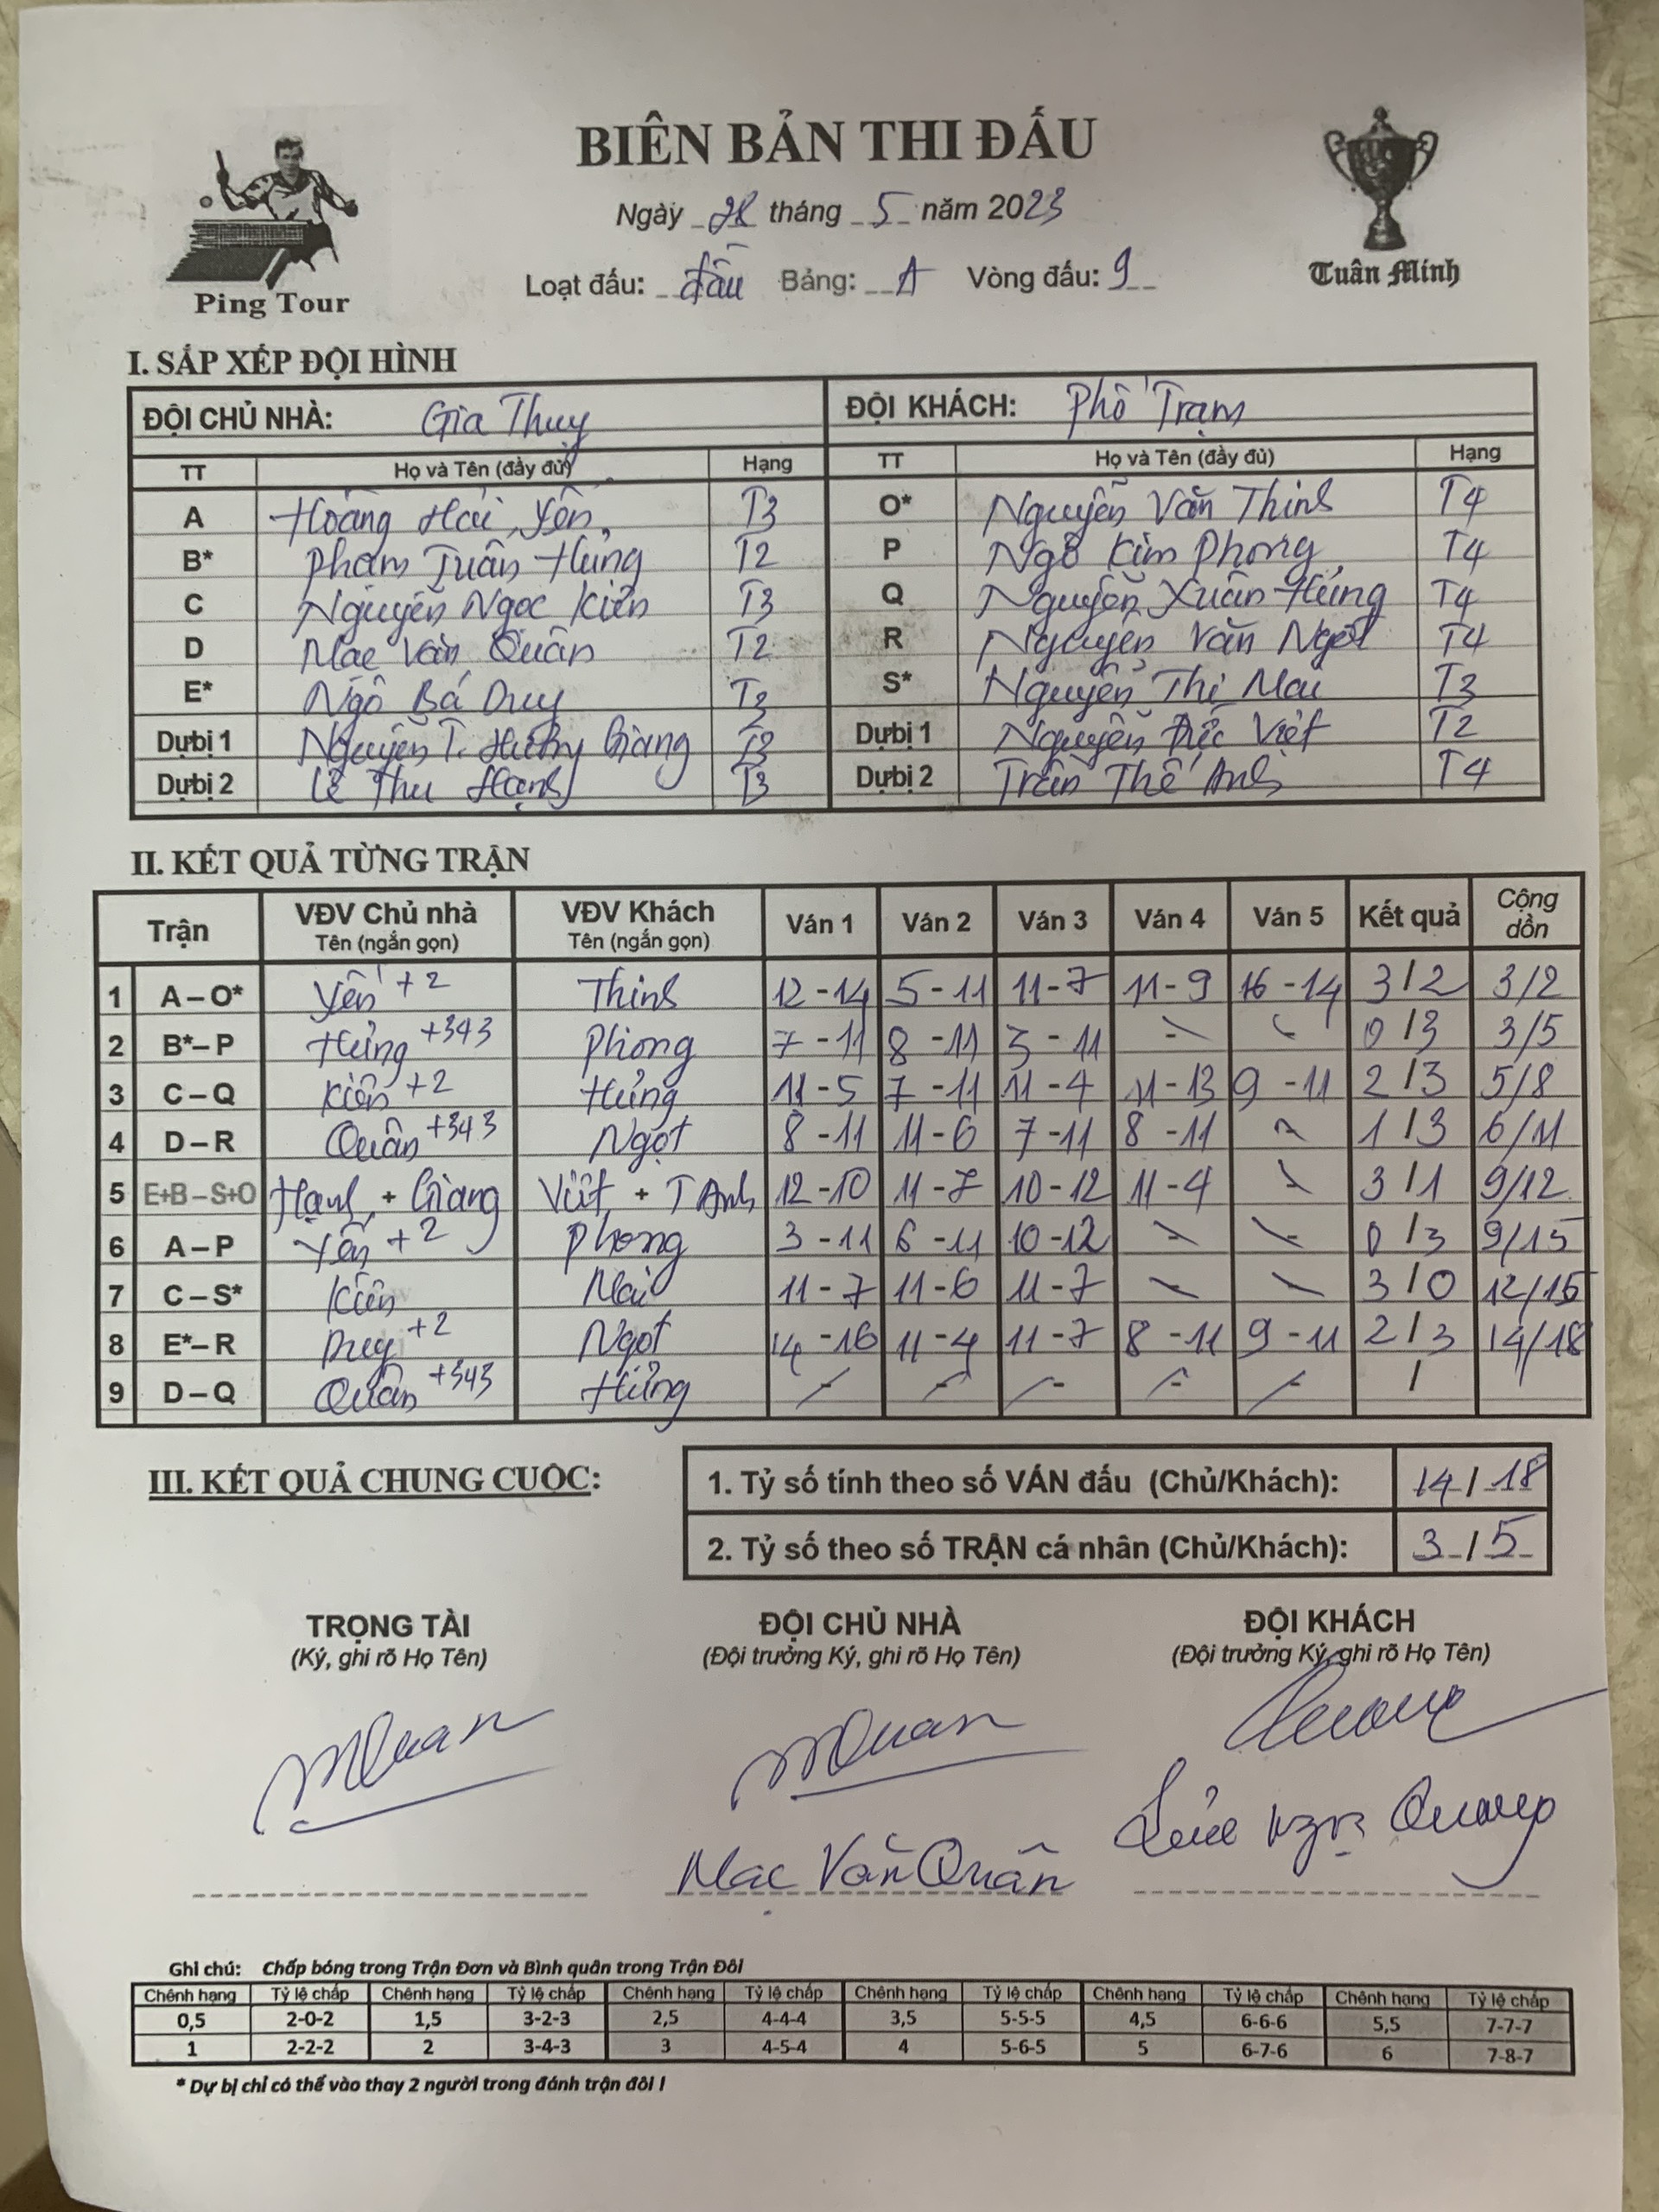 BIÊN BẢN THI ĐẤU
Ngày 28 tháng 5 năm 2023
Loạt đấu: đầu Bảng: A Vòng đấu: 9
Ping Tour
Tuân Minh
I. SẮP XẾP ĐỘI HÌNH
ĐỘI CHỦ NHÀ: Gia Thuỵ ĐỘI KHÁCH: Phố Trạm
TT Họ và Tên (đầy đủ) Hạng TT Họ và Tên (đầy đủ) Hạng
A Hoàng Hải Yến T3 O* Nguyễn Văn Thinh T4
B* Phạm Tuấn Hưng T2 P Ngô Kim Phong T4
C Nguyễn Ngọc Kiên T3 Q Nguyễn Xuân Hưng T4
D Mạc Văn Quân T2 R Nguyễn Văn Ngọt T4
E* Ngô Bá Duy S* Nguyễn Thị Mai T3
Dự bị 1 Nguyễn T. Hương Giang Dự bị 1 Nguyễn Đức Việt T2
Dự bị 2 Lê Thu Hạnh T3 Dự bị 2 Trần Thế Anh T4
II. KẾT QUẢ TỪNG TRẬN
Trận VĐV Chủ nhà VĐV Khách Ván 1 Ván 2 Ván 3 Ván 4 Ván 5 Kết quả Cộng dồn
Tên (ngắn gọn) Tên (ngắn gọn)
1 A – O* Yến +2 Thinh 12 - 14 5 - 11 11 - 7 11 - 9 16 - 14 3 / 2 3/2
2 B* – P Hưng +343 Phong 7 - 11 8 - 11 3 - 11 - - 0 / 3 3/5
3 C – Q Kiên +2 Hưng 11 - 5 7 - 11 11 - 4 11 - 13 9 - 11 2 / 3 5/8
4 D – R Quân +343 Ngọt 8 - 11 11 - 6 7 - 11 8 - 11 - 1 / 3 6/11
5 E+B – S+O Hạnh + Giang Việt + T Anh 12 - 10 11 - 7 10 - 12 11 - 4 - 3 / 1 9/12
6 A – P Yến +2 Phong 3 - 11 6 - 11 10 - 12 - - 0 / 3 9/15
7 C – S* Kiên Mai 11 - 7 11 - 6 11 - 7 - - 3 / 0 12/15
8 E* – R Duy +2 Ngọt 14 - 16 11 - 4 11 - 7 8 - 11 9 - 11 2 / 3 14/18
9 D – Q Quân +343 Hưng - - - - - /
III. KẾT QUẢ CHUNG CUỘC:
1. Tỷ số tính theo số VÁN đấu (Chủ/Khách): 14 / 18
2. Tỷ số theo số TRẬN cá nhân (Chủ/Khách): 3 / 5
TRỌNG TÀI ĐỘI CHỦ NHÀ ĐỘI KHÁCH
(Ký, ghi rõ Họ Tên) (Đội trưởng Ký, ghi rõ Họ Tên) (Đội trưởng Ký, ghi rõ Họ Tên)
MQuan MQuan
Mạc Văn Quân
Ghi chú: Chấp bóng trong Trận Đơn và Bình quân trong Trận Đôi
Chênh hạng Tỷ lệ chấp Chênh hạng Tỷ lệ chấp Chênh hạng Tỷ lệ chấp Chênh hạng Tỷ lệ chấp Chênh hạng Tỷ lệ chấp Chênh hạng Tỷ lệ chấp
0,5 2-0-2 1,5 3-2-3 2,5 4-4-4 3,5 5-5-5 4,5 6-6-6 5,5 7-7-7
1 2-2-2 2 3-4-3 3 4-5-4 4 5-6-5 5 6-7-6 6 7-8-7
* Dự bị chỉ có thể vào thay 2 người trong đánh trận đôi !